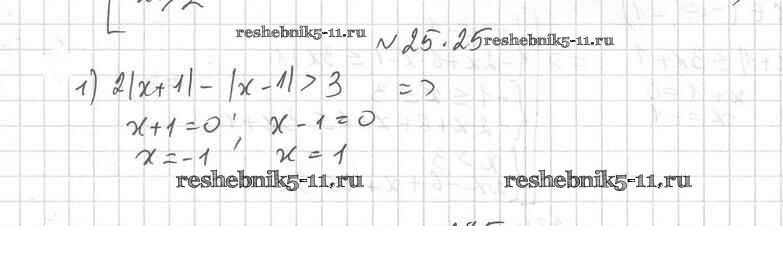 reshebnik5-11.ru
№ 25.25 reshebnik5-11.ru
1) 2|x+1| - |x-1| > 3 =>
x+1=0; x-1=0
x=-1; x=1
reshebnik5-11.ru reshebnik5-11.ru